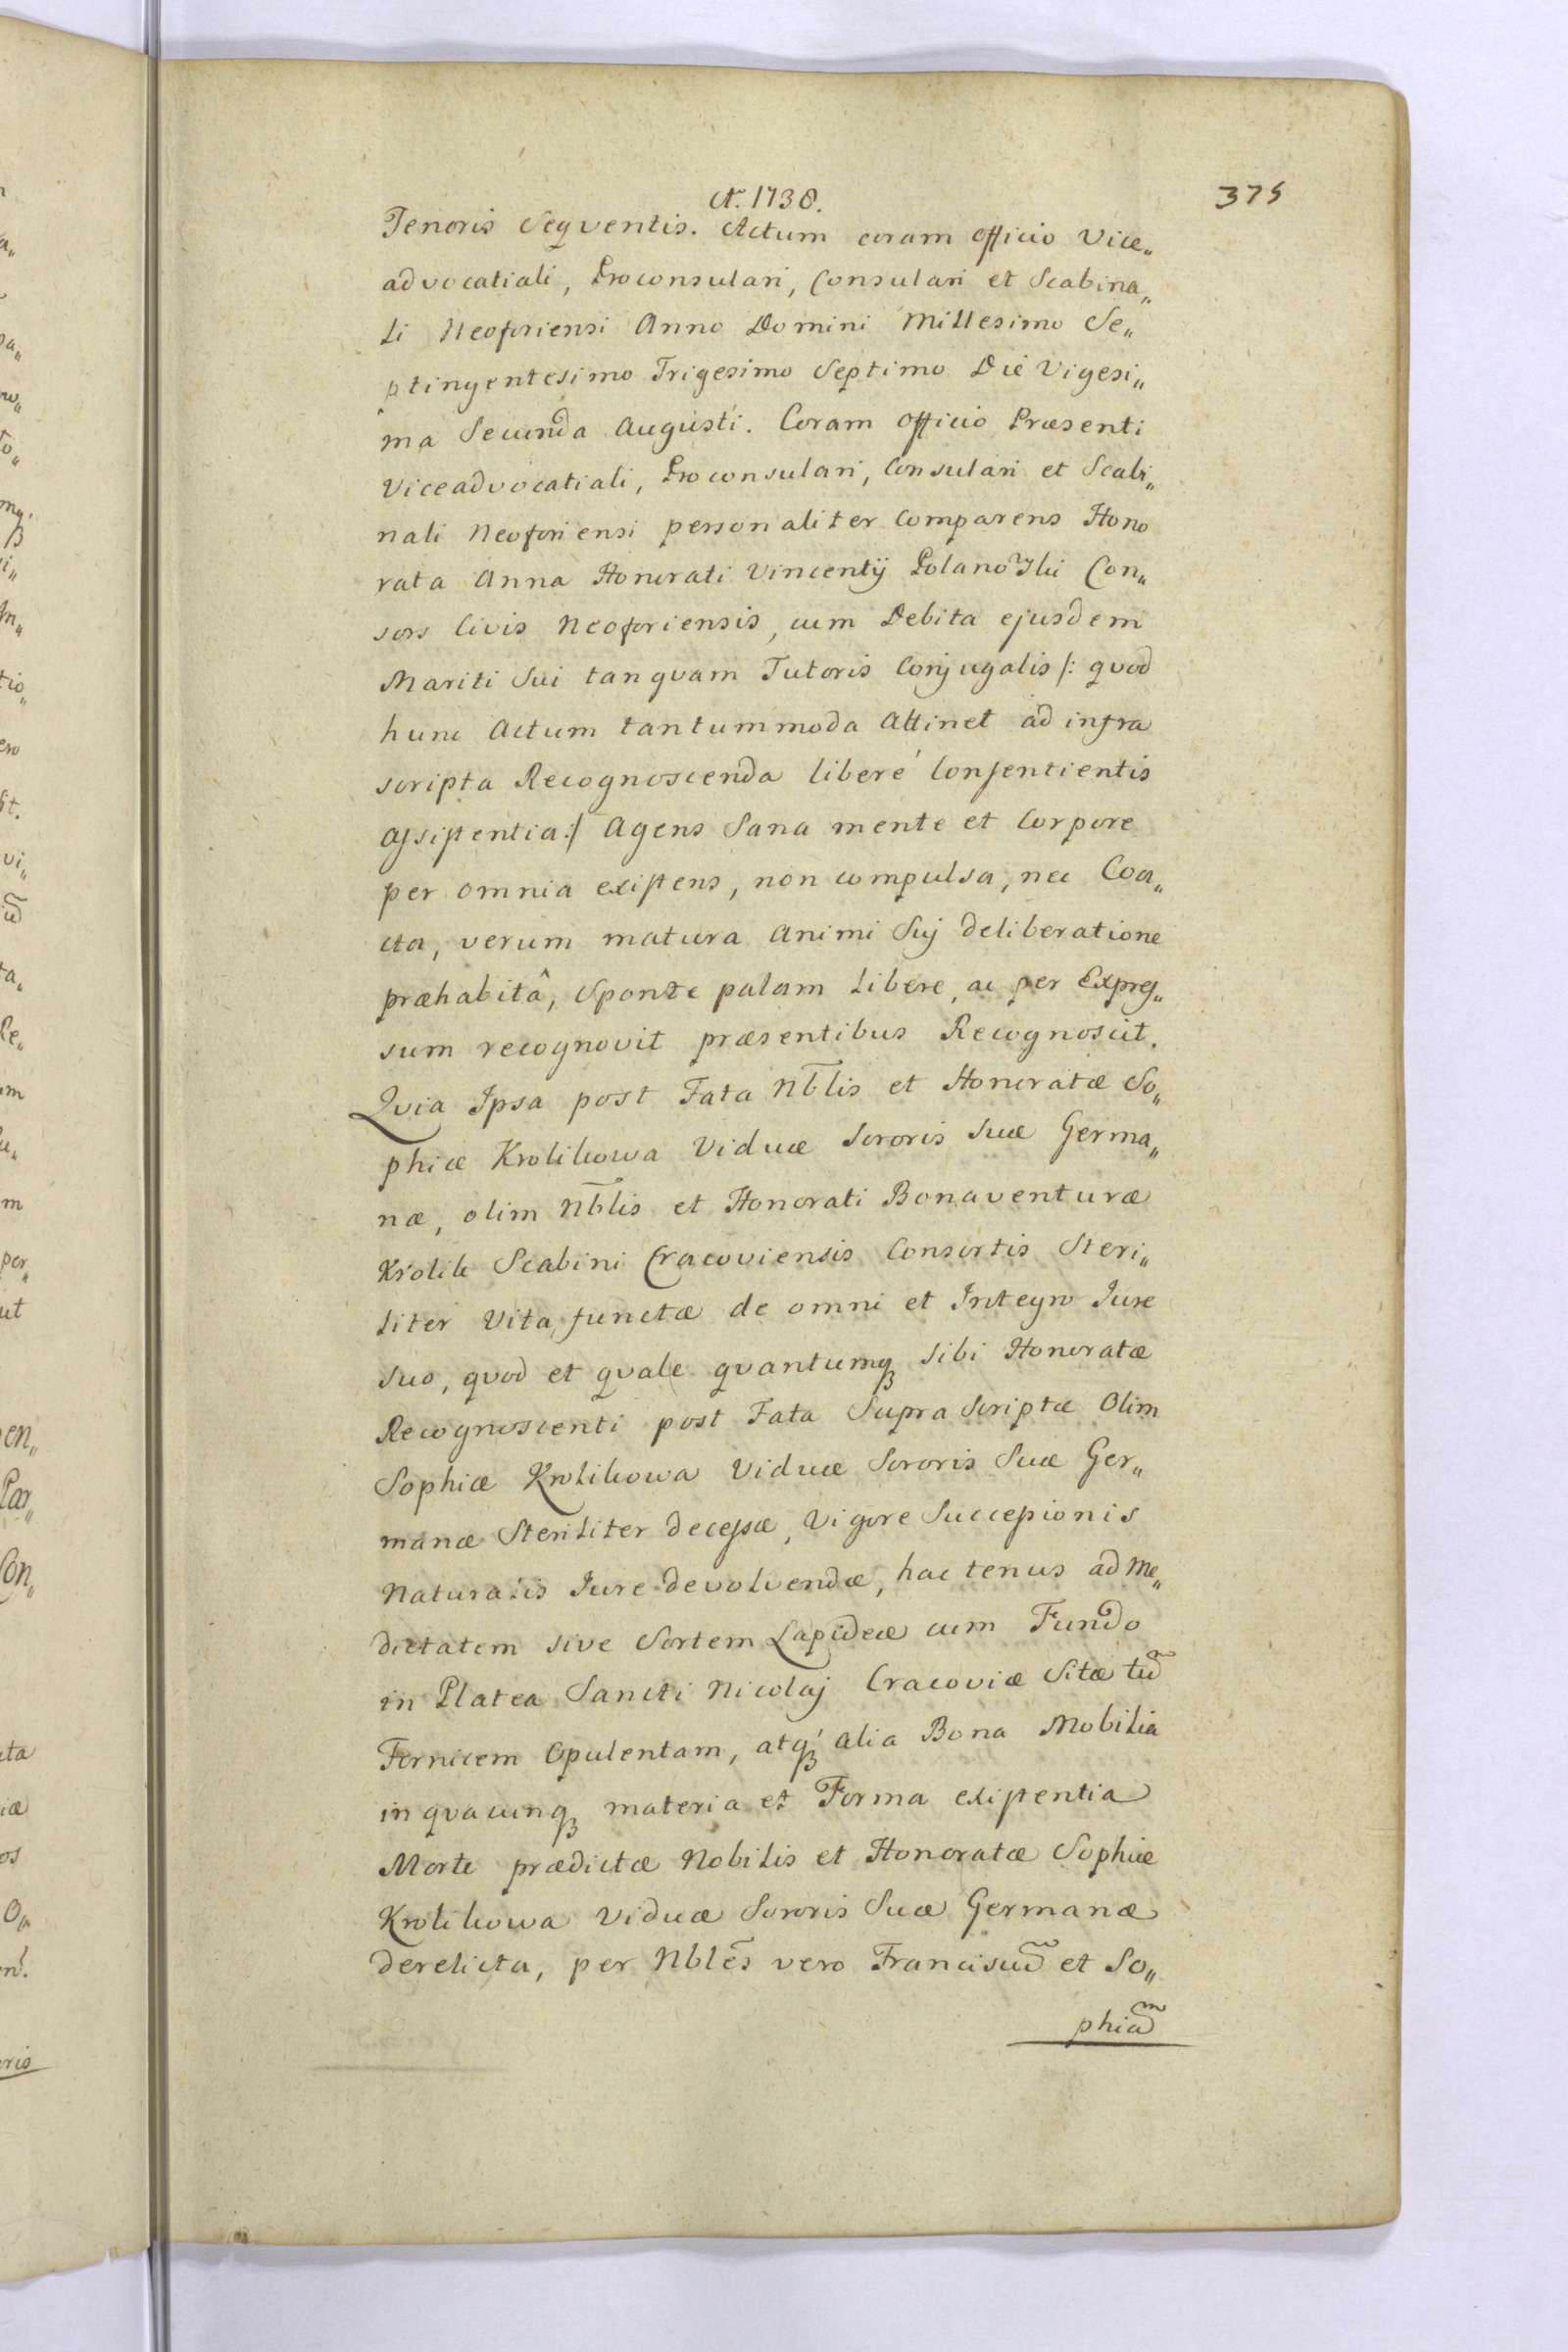 A. 1738.
375
Tenoris Seqventis. Actum coram officio Vice„
advocatiali, Proconsulari, Consulari et Scabina„
li Neoforiensi Anno Domini Millesimo Se„
ptingentesimo Trigesimo Septimo Die Vigesi„
ma Secunda Augusti. Coram officio Præsenti
Viceadvocatiali, Proconsulari, Consulari et Scabi„
nali Neoforiensi personaliter Comparens Hono
rata Anna Honorati Vincentij Polanoski Con„
sors Civis Neoforiensis, cum Debita ejusdem
Mariti Sui tanqvam Tutoris Conjugalis /: qvod
hunc Actum tantummoda Attinet ad infra
scripta Recognoscenda liberé Consentientis
assistentia :/ Agens Sana mente et Corpore
per omnia existens, non compulsa, nec Coa„
cta, verum matura Animi Suj deliberatione
præhabitâ, Sponte palam Libere, ac per Expres„
sum recognovit præsentibus Recognoscit.
Qvia Ipsa post Fata Nblis et Honoratæ So„
phiæ Krolikowa Viduæ Sororis Suæ Germa„
næ, olim Nblis et Honorati Bonaventuræ
Krolik Scabini Cracoviensis Consortis Steri„
liter Vita functæ de omni et Integro Jure
Suo, qvod et qvale qvantumq₃ Sibi Honoratæ
Recognoscenti post Fata Supra Scriptæ Olim
Sophiæ Krolikowa Viduæ Sororis Suæ Ger„
manæ Steriliter decessæ, Vigore Successionis
Naturalis Jure devolvendæ, hactenus ad Me„
dietatem sive Sortem Lapideæ cum Fundo
in Platea Sancti Nicolaj Cracoviæ Sitæ tũ
Fornicem Opulentam, atq₃ alia Bona Mobilia
in qvacunq₃ materia et Forma existentia
Morte prædictæ Nobilis et Honoratæ Sophiæ
Krolikowa Viduæ Sororis Suæ Germanæ
derelicta, per Nblẽs vero Franciscũ et So„
phiã